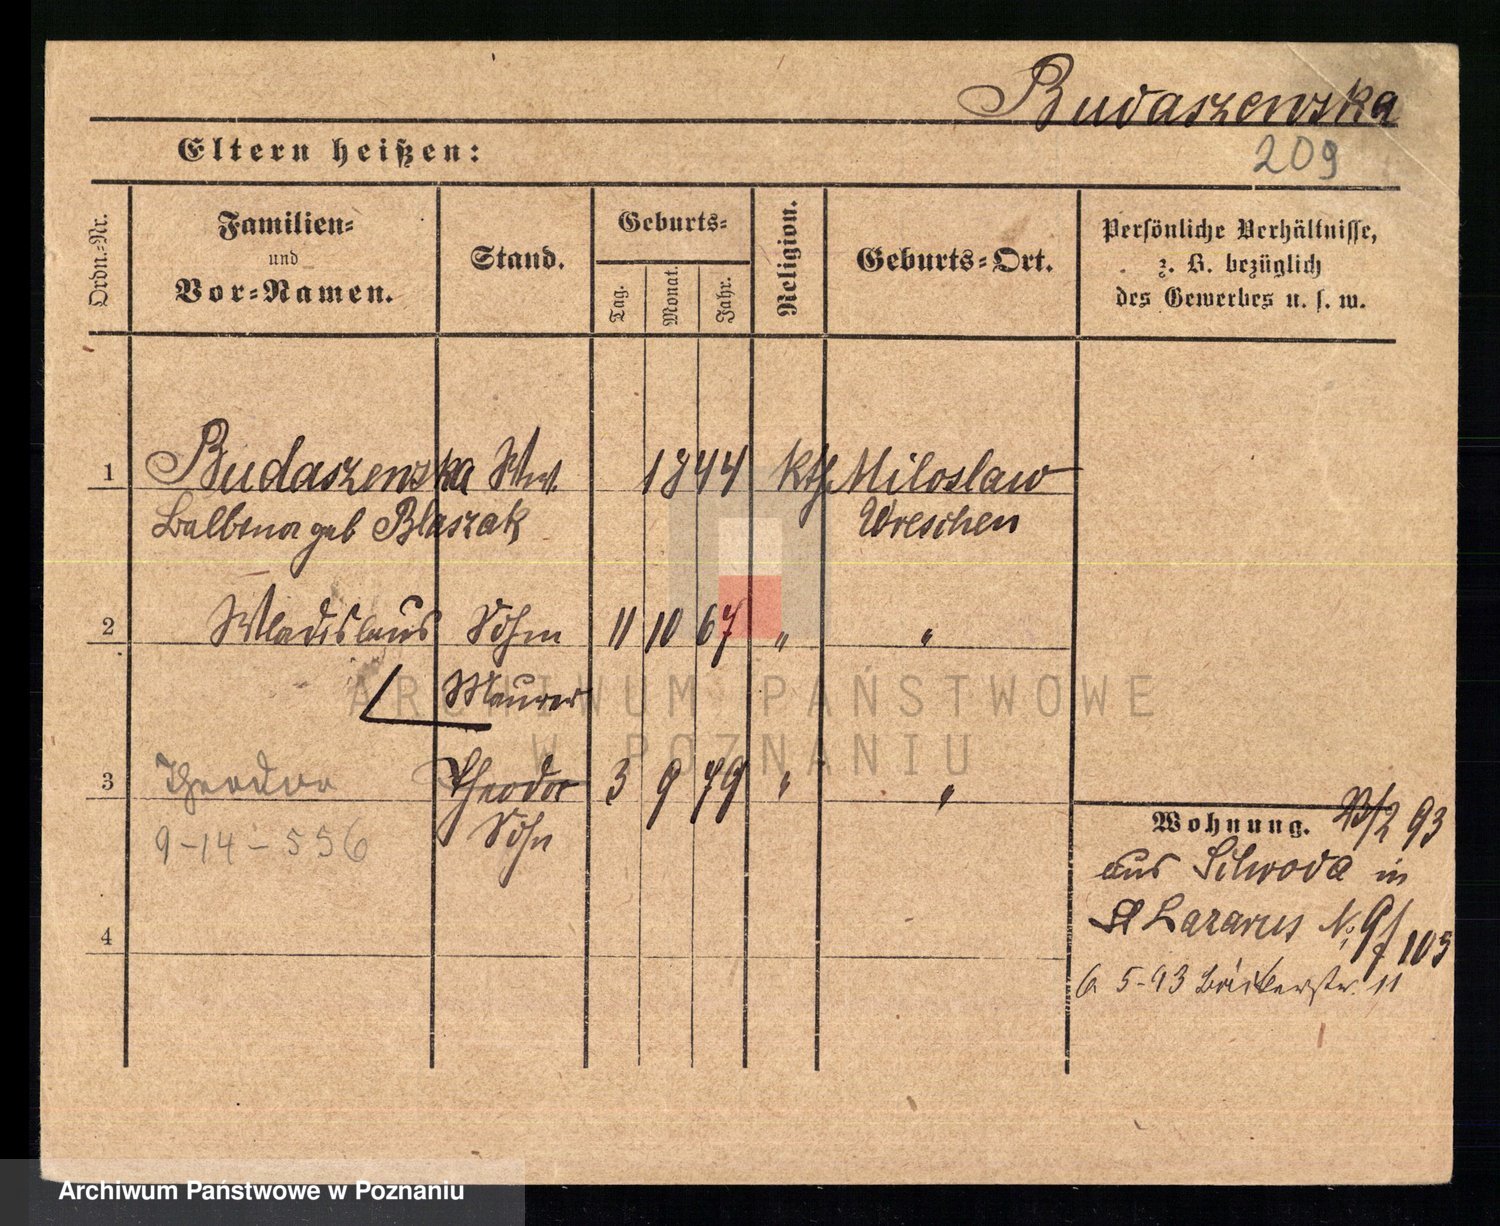 Budaszewska
209
Eltern heißen:
Ordn.-Nr.
Familien- und Vor-Namen.
Stand.
Geburts-
Tag.
Monat.
Jahr.
Religion.
Geburts-Ort.
Persönliche Verhältnisse,
z. B. bezüglich
des Gewerbes u. s. w.
1 Budaszewska Ww. 1844 kth Miloslaw
Balbina geb Blaszak Wreschen
2 Wladislaus Sohn 11 10 67 " "
Maurer
3 Theodor Theodor 3 9 79 " "
9-14-556 Sohn
4
Wohnung. 23/2 93
aus Silwoda in
St Lazarus N. 9/ 103
6 5-93 Bäckerstr. 11
ARCHIWUM PAŃSTWOWE
W POZNANIU
Archiwum Państwowe w Poznaniu